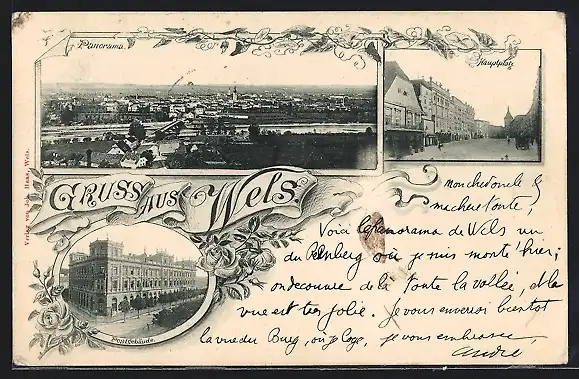 Panorama.
Hauptplatz
Verlag von Joh. Haas, Wels.
GRUSS AUS Wels.
Postgebäude.
mon cher oncle &
ma chère tante,
Voici le panorama de Wels vu
du où je suis monté hier;
on découvre de là toute la vallée, et la
vue est très jolie. Je vous enverrai bientôt
la vue du Burg, où je loge, je vous embrasse,
André